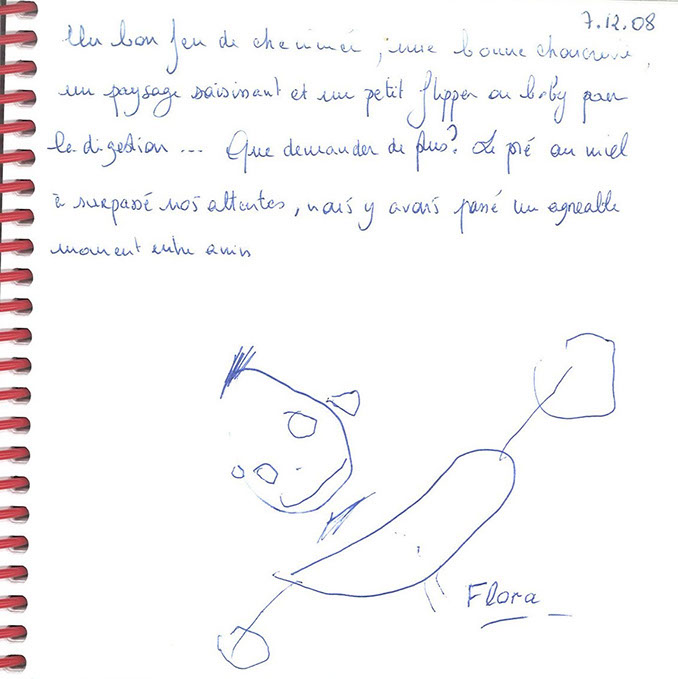 7.12.08
Un bon feu de cheminée, une bonne choucroute,
un paysage saisissant et un petit flipper ou baby pour
la digestion ... Que demander de plus? Le pré au miel
à surpassé nos attentes, nous y avons passé un agréable
moment entre amis
Flora